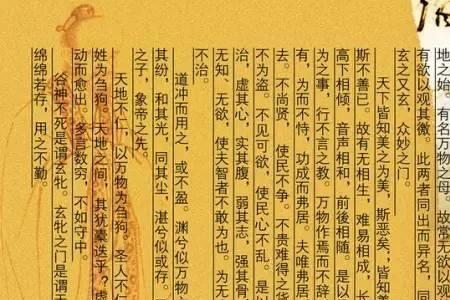 地之始。有名万物之母。故常无欲以观
有欲以观其徼。此两者同出而异名，
玄之又玄，众妙之门。
天下皆知美之为美，斯恶矣；皆知善
斯不善已。故有无相生，难易相成，长
高下相倾，音声相和，前後相随。是以
为之事，行不言之教。万物作焉而不辞
有，为而不恃，功成而弗居。夫唯弗居
去。不尚贤，使民不争。不贵难得之货
不为盗。不见可欲，使民心不乱。是以
治，虚其心，实其腹，弱其志，强其骨
无知、无欲，使夫智者不敢为也。为无
不治。
道冲而用之，或不盈。渊兮似万物
其纷，和其光，同其尘，湛兮似或存。
之子，象帝之先。
天地不仁，以万物为刍狗。圣人不仁
姓为刍狗。天地之间，其犹橐迭乎？虚
动而愈出。多言数穷，不如守中。
谷神不死是谓玄牝。玄牝之门是谓天
绵绵若存，用之不勤。